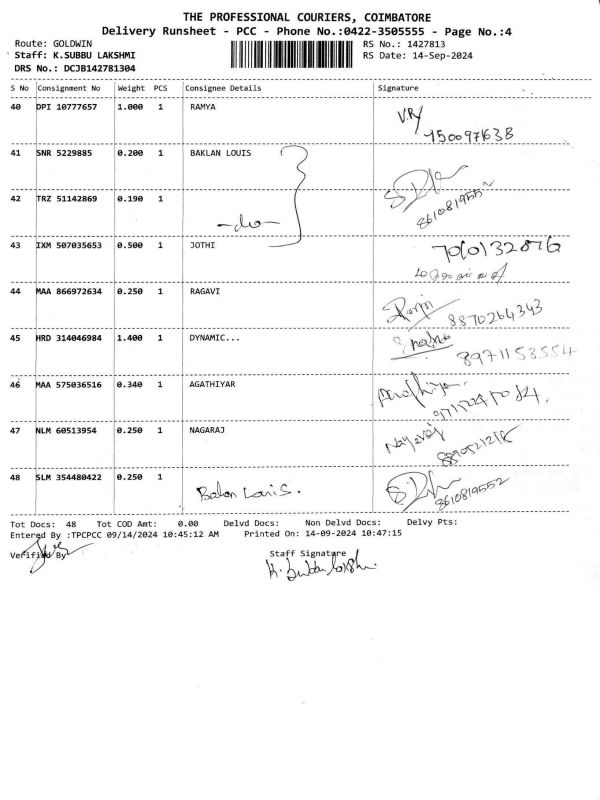 THE PROFESSIONAL COURIERS, COIMBATORE
Delivery Runsheet - PCC - Phone No.:0422-3505555 - Page No.:4
Route: GOLDWIN RS No.: 1427813
Staff: K.SUBBU LAKSHMI RS Date: 14-Sep-2024
DRS No.: DCJB142781304
S No Consignment No Weight PCS Consignee Details Signature
40 DPI 10777657 1.000 1 RAMYA V.Ry
41 SNR 5229885 0.200 1 BAKLAN LOUIS
42 TRZ 51142869 0.190 1 -do- 8610819552
43 IXM 507035653 0.500 1 JOTHI
44 MAA 866972634 0.250 1 RAGAVI
8870264343
45 HRD 314046984 1.400 1 DYNAMIC...
8971153554
46 MAA 575036516 0.340 1 AGATHIYAR
47 NLM 60513954 0.250 1 NAGARAJ Nagaraj
48 SLM 354480422 0.250 1 Balan Louis. 8610819552
Tot Docs: 48 Tot COD Amt: 0.00 Delvd Docs: Non Delvd Docs: Delvy Pts:
Entered By :TPCPCC 09/14/2024 10:45:12 AM Printed On: 14-09-2024 10:47:15
Verified By Staff Signature
K. Subbu lakshmi